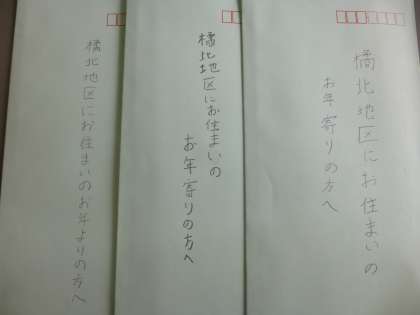 橋北地区にお住まいの
お年寄りの方へ
橋北地区にお住まいの
お年寄りの方へ
橋北地区にお住まいのお年よりの方へ